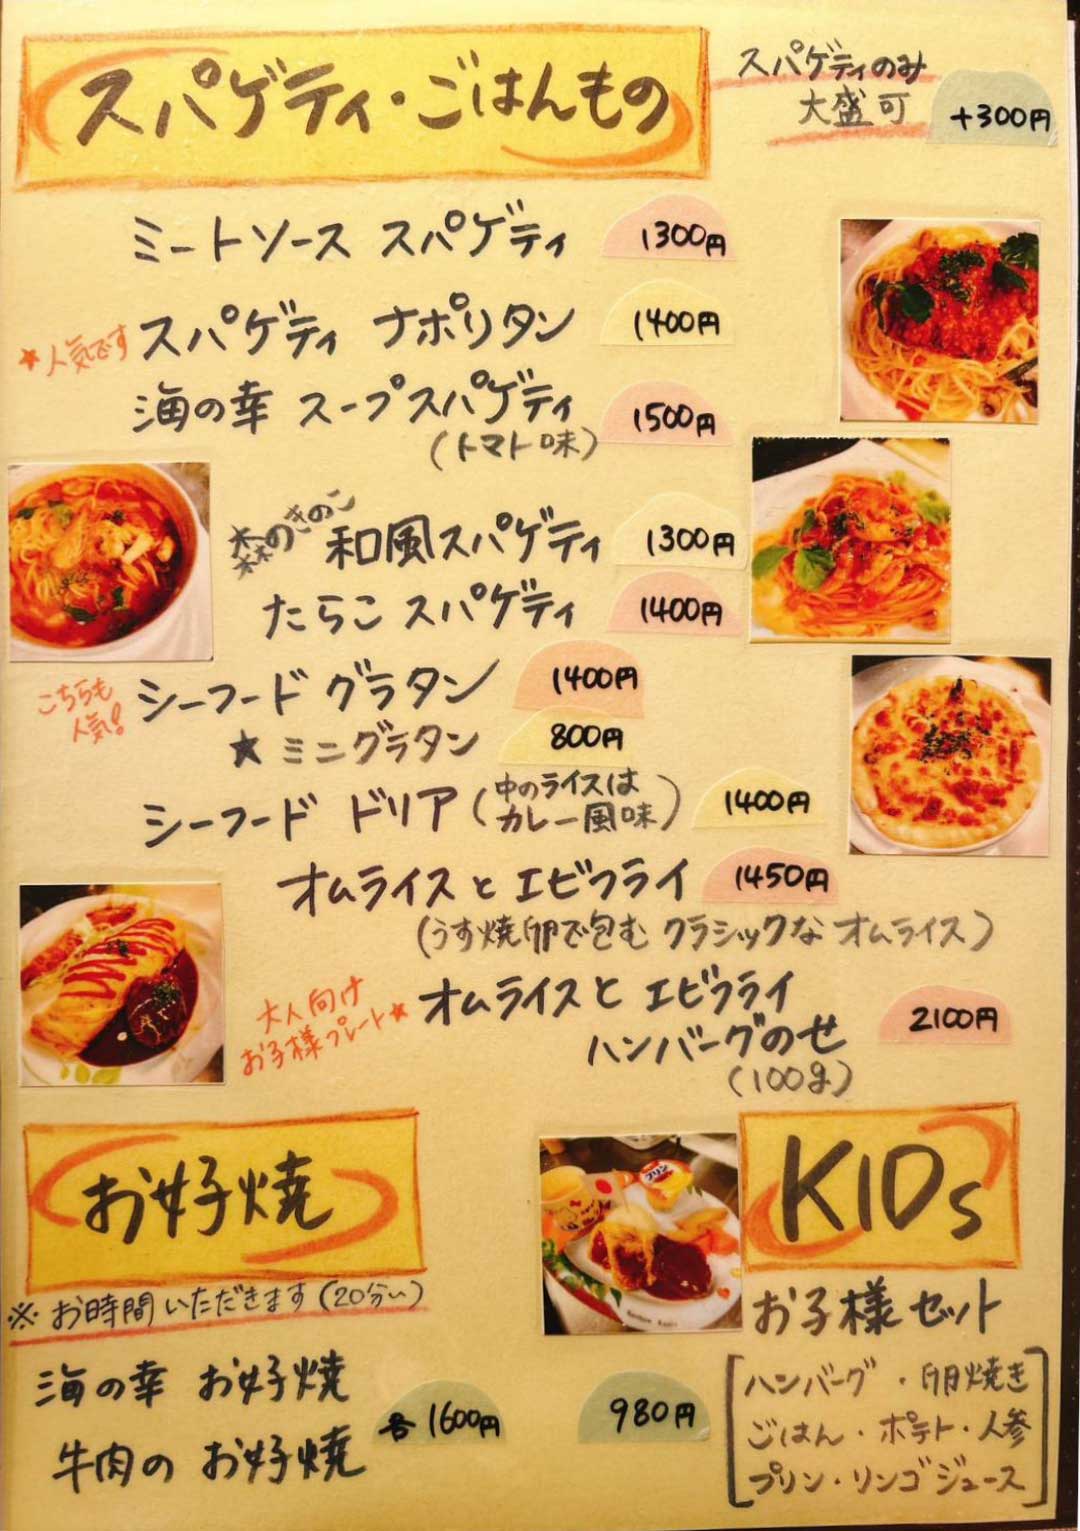 スパゲティ・ごはんもの
スパゲティのみ
大盛可 +300円
ミートソース スパゲティ 1300円
★人気です スパゲティ ナポリタン 1400円
海の幸 スープスパゲティ 1500円
(トマト味)
森のきのこ 和風スパゲティ 1300円
たらこ スパゲティ 1400円
こちらも
人気!
シーフード グラタン 1400円
★ミニグラタン 800円
シーフード ドリア (中のライスは
カレー風味) 1400円
オムライスと エビフライ 1450円
(うす焼卵で包む クラシックな オムライス)
大人向け
お子様プレート★
オムライスと エビフライ
ハンバーグのせ 2100円
(100g)
お好焼
※お時間いただきます(20分い)
海の幸 お好焼
牛肉の お好焼
各1600円
プリン
KIDs
お子様セット
980円
[ハンバーグ・卵焼き
ごはん・ポテト・人参
プリン・リンゴジュース]